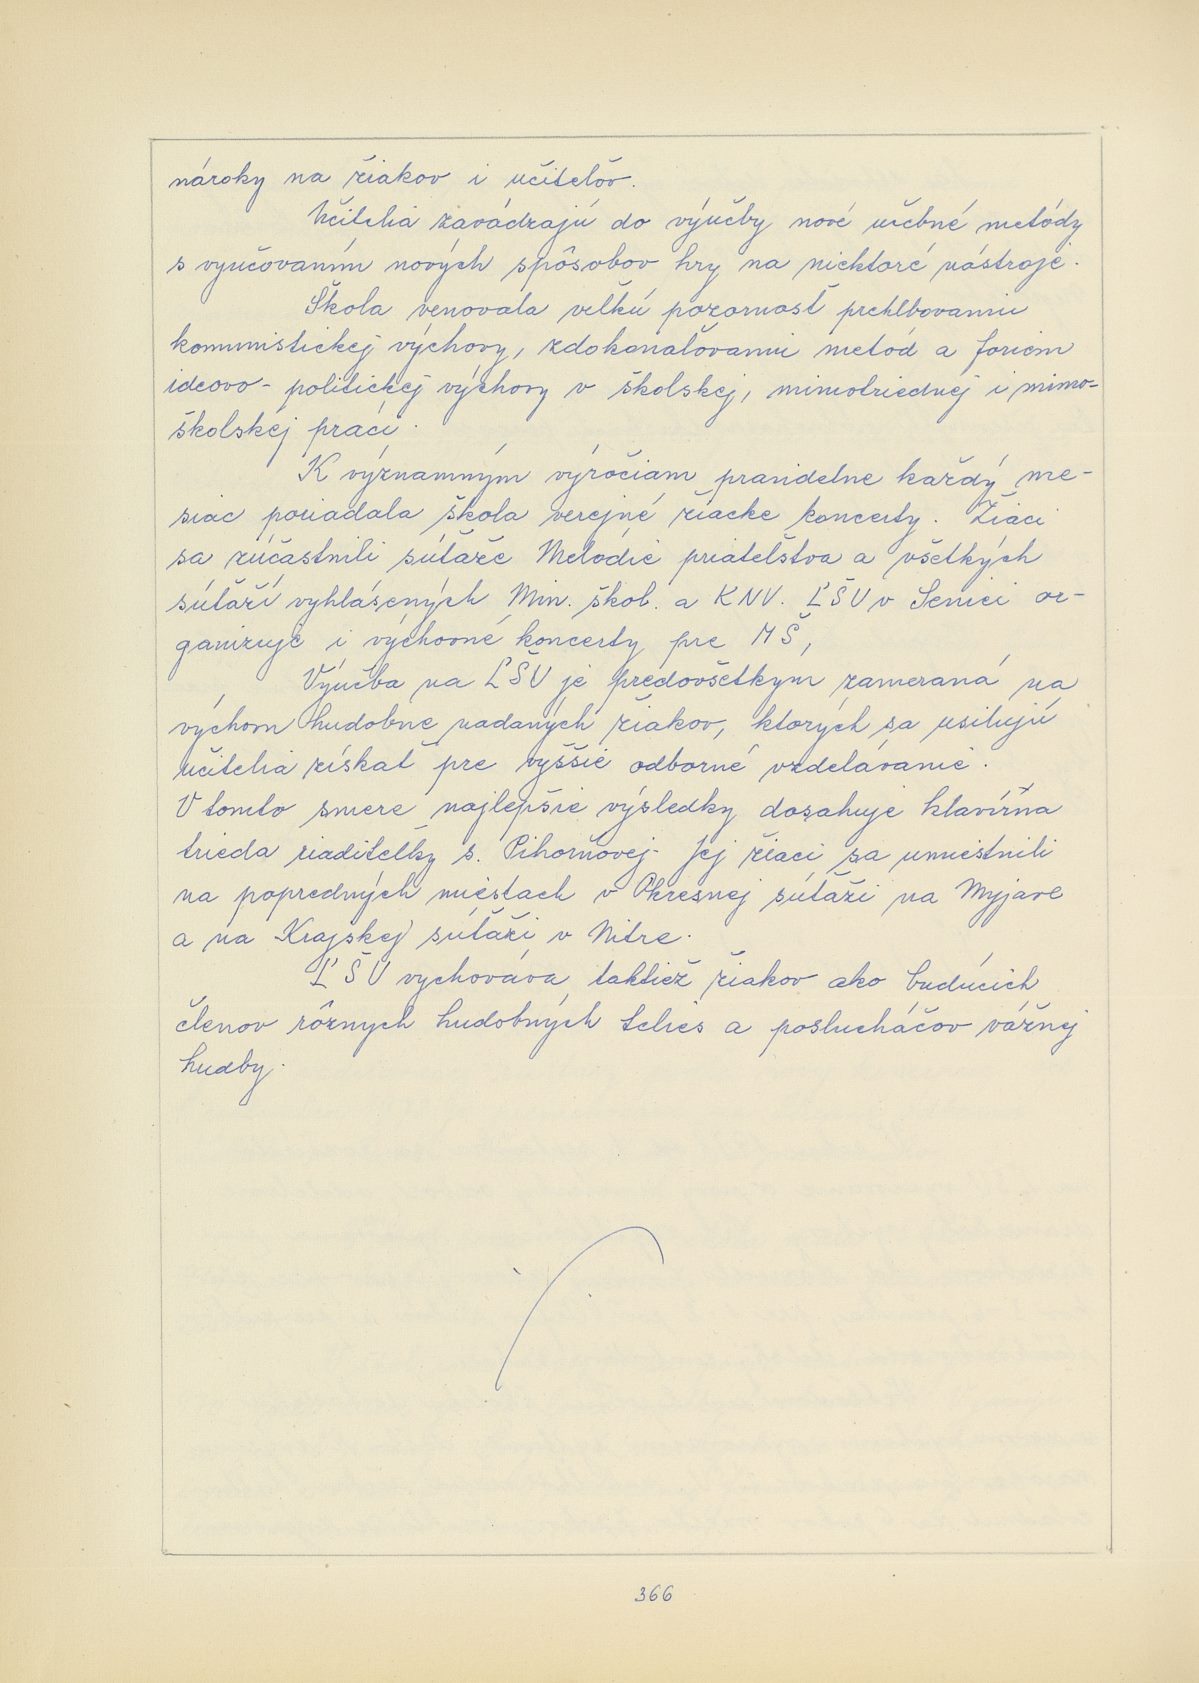 nároky na žiakov i učiteľov.
Učitelia zavádzajú do výučby nové učebné metódy
s vyučovaním nových spôsobov hry na niektoré nástroje.
Škola venovala veľkú pozornosť prehlbovaniu
komunistickej výchovy, zdokonaľovaniu metód a foriem
ideovo-politickej výchovy v školskej, mimotriednej i mimo-
školskej práci.
K významným výročiam pravidelne každý me-
siac poriadala škola verejné žiacke koncerty. Žiaci
sa zúčastnili súťaže Melódie priateľstva a všetkých
súťaží vyhlásených Min. škol. a KNV. ĽŠU v Senici or-
ganizuje i výchovné koncerty pre MŠ,
Výučba na ĽŠU je predovšetkym zameraná na
výchovu hudobne nadaných žiakov, ktorých sa usilujú
učitelia získať pre vyššie odborné vzdelávanie.
V tomto smere najlepšie výsledky dosahuje klavírna
trieda riaditeľky s. Pihorňovej. Jej žiaci sa umiestnili
na popredných miestach v Okresnej súťaži na Myjave
a na Krajskej súťaži v Nitre.
ĽŠU vychováva taktiež žiakov ako budúcich
členov rôznych hudobných telies a poslucháčov vážnej
hudby.
366